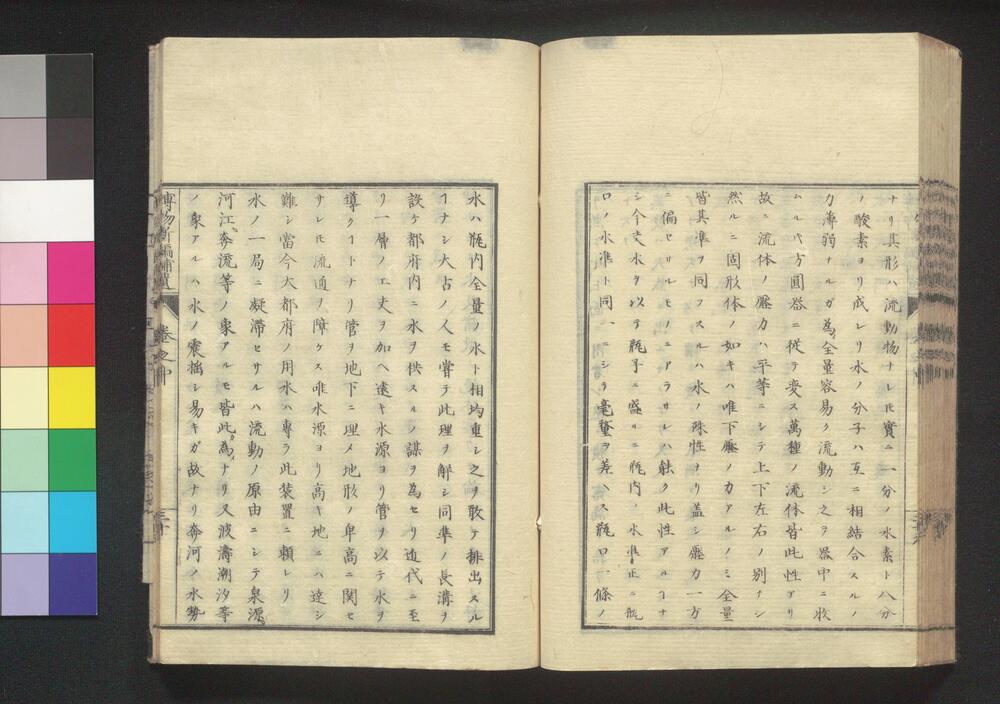 ナリ其形ハ流動物ナレ𪜈實ニ一分ノ水素ト八分
ノ酸素ヨリ成レリ水ノ分子ハ互ニ相結合スルノ
力薄弱ナルガ為全量容易ク流動シ之ヲ器中ニ收
ムル𪜈方圓器ニ從テ変ス萬種ノ流体皆此性アリ
故ニ流体ノ壓力ハ平等ニシテ上下左右ノ別ナシ
然ルニ固形体ノ如キハ唯下壓ノカアルノミ全量
皆其準ヲ同フスルハ水ノ殊性ナリ盖シ壓力一方
ニ偏セリルモノニアラサレハ能ク此性アルヿナ
シ今夫水タ以テ瓶子ニ盛ルニ瓶内ノ水準正ニ瓶
口ノ水準ト同一ニシテ毫釐ヲ差ヘス瓶口一條ノ
水ハ瓶内全量ノ水ト相均重シ之ヲ敢テ排出スル
ヿナシ大古ノ人モ嘗テ此理ヲ解シ同準ノ長溝ヲ
設ケ都府内ニ水ヲ供スルノ謀ヲ為セリ近代ニ至
リ一層ノ工夫ヲ加ヘ遠キ水源ヨリ管ヲ以テ水ヲ
導クヿトナリ管ヲ地下ニ理メ地形ノ卑高ニ関セ
サレ𪜈流通ノ障ケス唯水源ヨリ高キ地ニハ達シ
難シ當今大都府ノ用水ハ專ラ此装置ニ頼レリ
水ノ一局ニ凝滞セサルハ流動ノ原由ニシテ泉源
河江奔流等ノ象アルモ皆此為ナリ又波濤潮汐等
ノ象アルハ水ノ震揺シ易キガ故ナリ奔河ノ水勢
博物新編補遺 卷之中